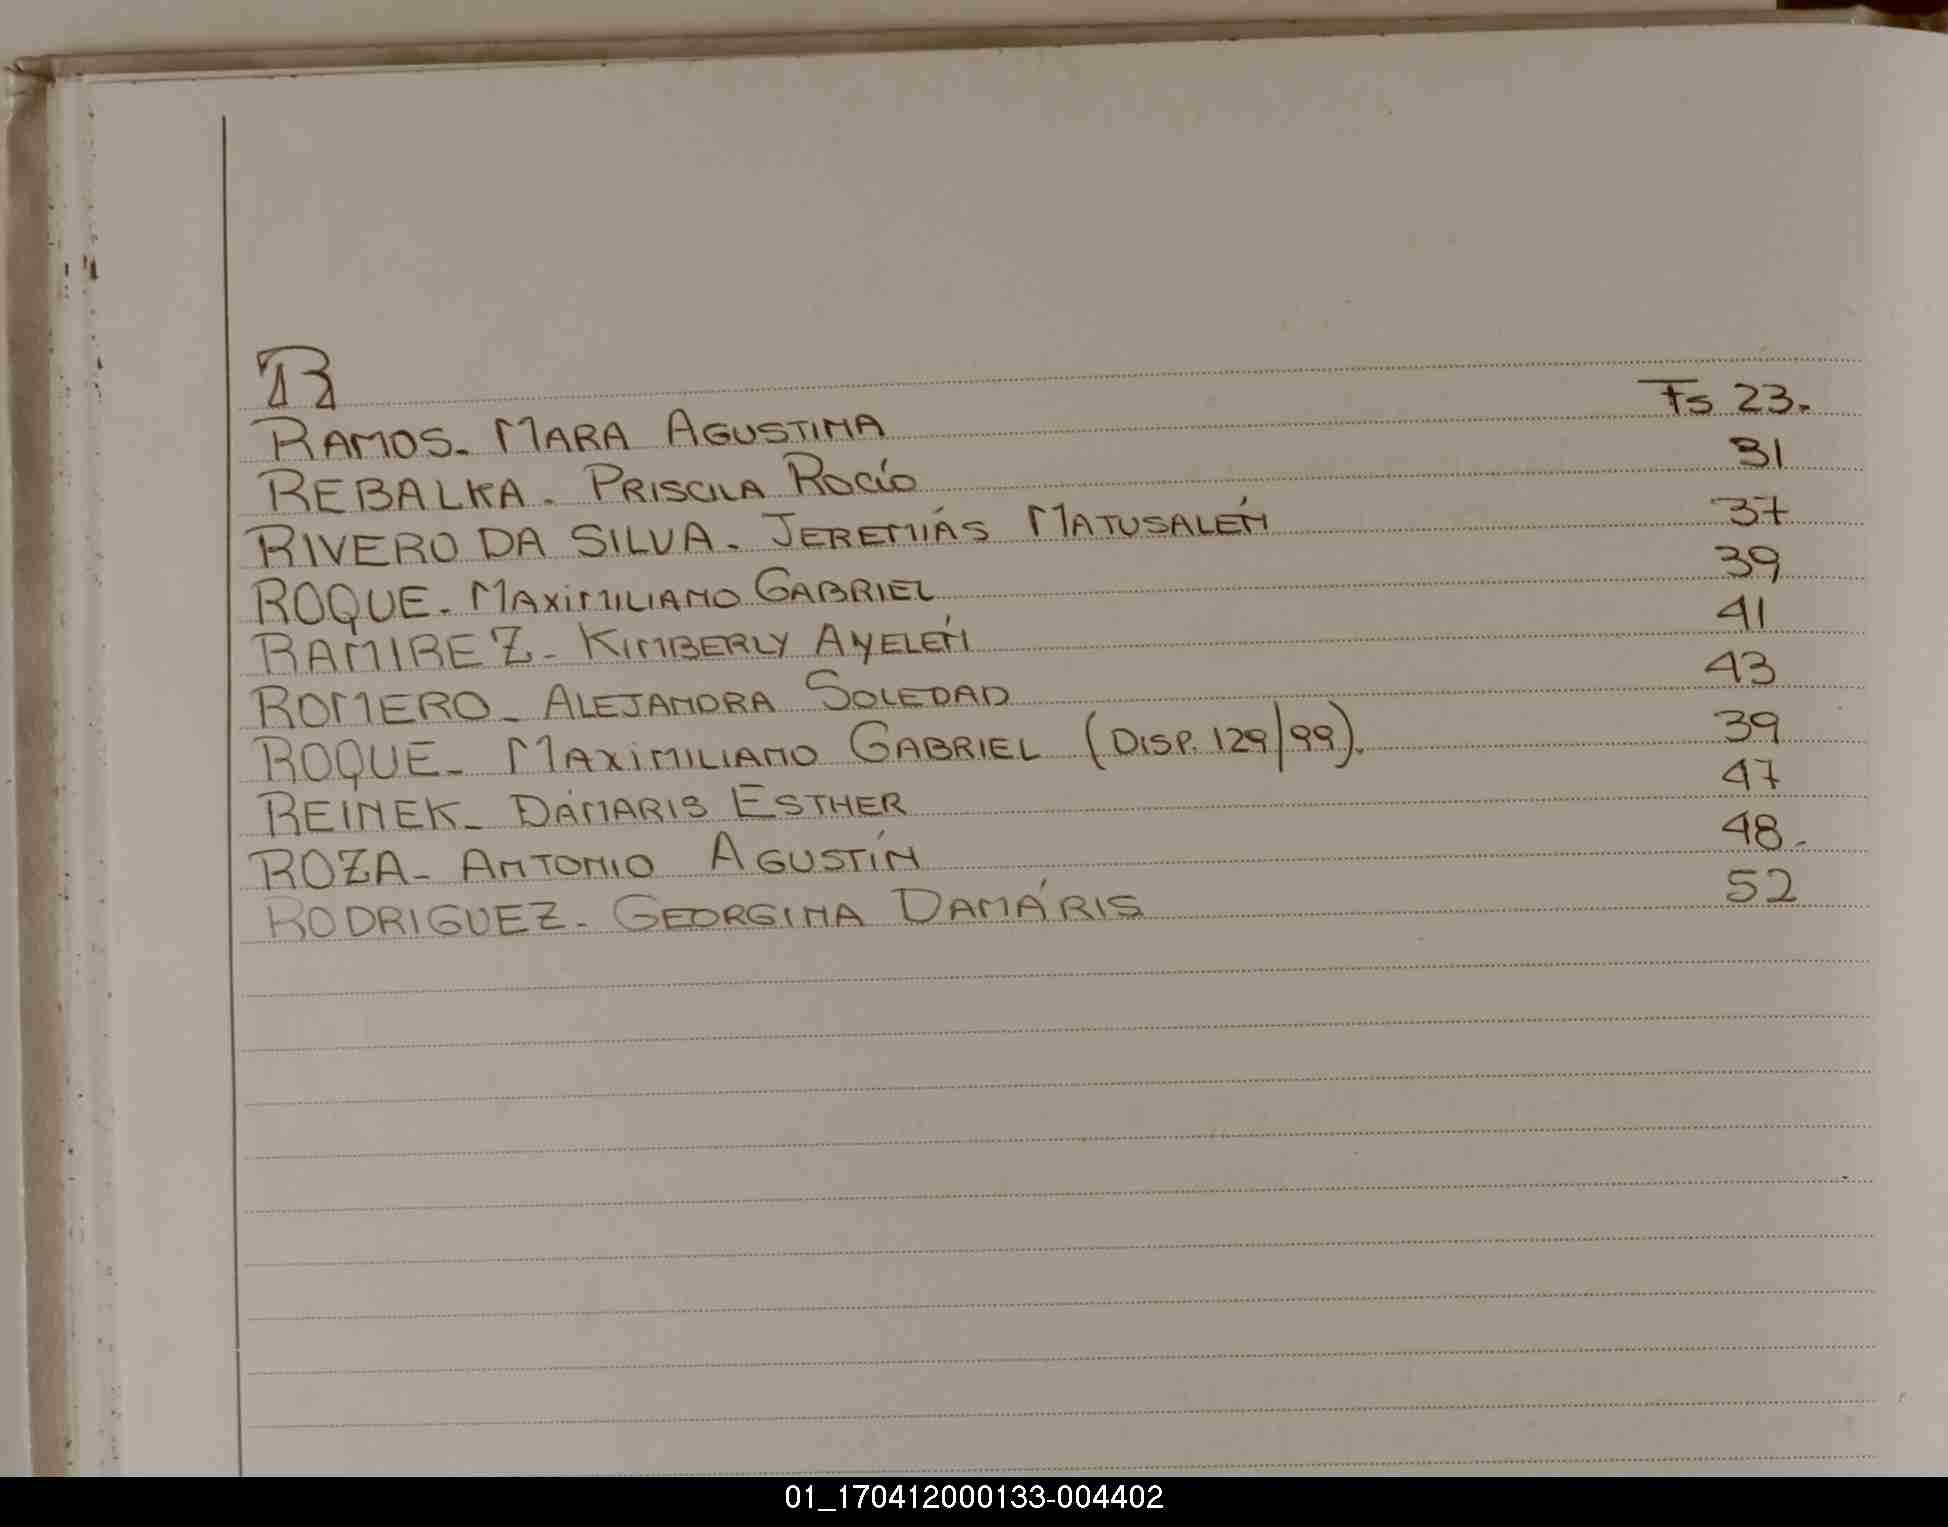 R
RAMOS. MARA AGUSTINA Fs 23.
REBALKA. PRISCILA ROCÍO 31
RIVERO DA SILVA. JEREMÍAS MATUSALÉN 37
ROQUE. MAXIMILIANO GABRIEL 39
RAMIREZ. KIMBERLY AYELÉN 41
ROMERO. ALEJANDRA SOLEDAD 43
ROQUE. MAXIMILIANO GABRIEL (DISP. 129/99). 39
REINEK. DÁMARIS ESTHER 47
ROZA. ANTONIO AGUSTÍN 48.
RODRIGUEZ. GEORGINA DAMÁRIS 52
01_170412000133-004402